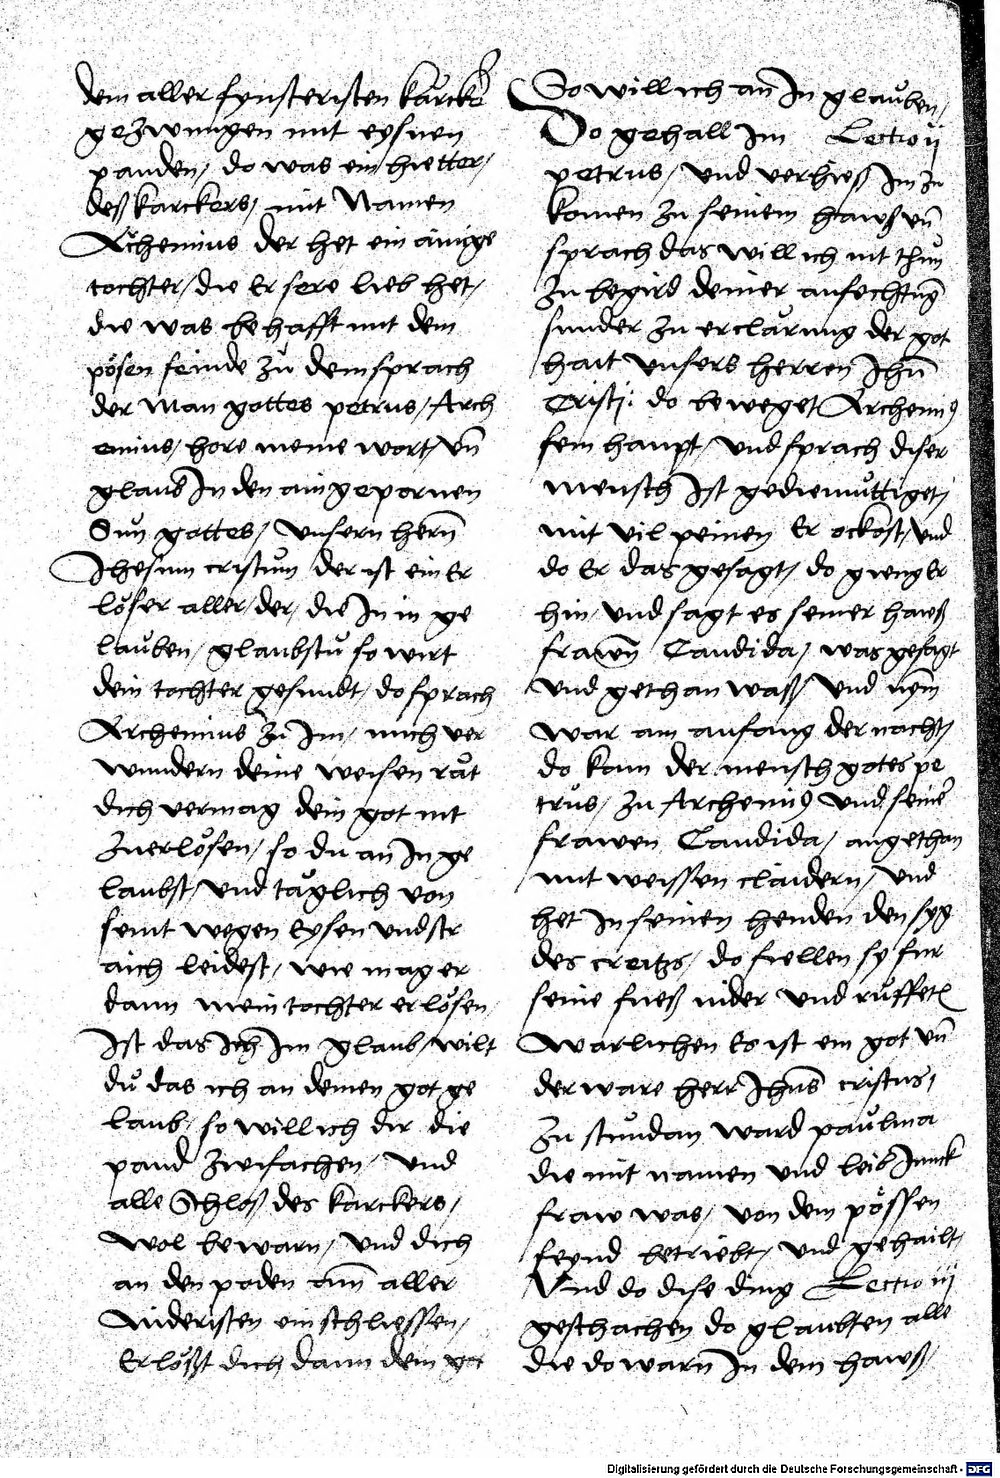 dem aller fynsteristen karcker
gezwungen mit eysnen
panden / do was ein hietter /
deß karckers / mit Namen
Archemius der het ein ainige
tochter / die Er sere lieb het /
die was behafft mit dem
pösen feinde zů dem sprach
der Man gottes petrus / Arch
emius / hore meine wort / vn̄
glaub In den aingepornen
Sun gottes / vnsern hern̄
Jhesum cristum der ist ein Er
löser aller / der / die In in ge
lauben / glaubstu so wirt
dein tochter gesundt / do sprach
Archemius zů Im / mich ver
wundern deine weisen rät
dich vermag dein got nit
zuerlösen / so du an In ge
laubst / vnd täglich von
seint wegen Eysen vnd str
aich leidest / wie mag er
dann mein tochter erlösen /
Ist das Ich Im glaub / wilt
du das ich an deinen got ge
laub / so will ich dir die
pand zwifachen / vnd
alle Schloß des karckers /
wol bewarn / vnd dich
an den poden aller
Nideristen einschliessen /
Erlößt dich dann dein got
So will ich an In glauben /
Do gehall Im Lectio ij
petrus / vnd verhieß Im zu
komen zu seinem hawß vn̄
sprach das will ich nit thun
zu begird deiner anfechtung
sunder zu erclärung der got
hait vnsers herren Jhū
Cristj: do beweget Archemi9
sein haupt / vnd sprach diser
mensch Ist gediemüttiget /
mit vil peinen Er ockost / vnd
do Er das gesagt / do gieng Er
hin / vnd sagt es seiner hawß
frawen Candida / was gesagt
vnd gethan waß / vnd nym
war am anfang der nacht /
do kam der mensch gotes pe
trus / zu Archemi9 vnd seiner
frawen Candida / angethan
mit weissen claidern / vnd
het In seinen henden den syg
des creitzs / do fiellen sy fur
seine fueß nider vnd rüffeten
Warlichen Es ist ein got vn̄
der ware herr Jhūs cristus /
zu stundan ward paulina
die mit namen vnd leib Junck
fraw was / von dem pössen
feynd betriebt / vnd gehailt /
Vnd do dise ding Lectio iij
geschachen do glaubten alle
die do warn In dem hawß /
Digitalisierung gefördert durch die Deutsche Forschungsgemeinschaft - DFG